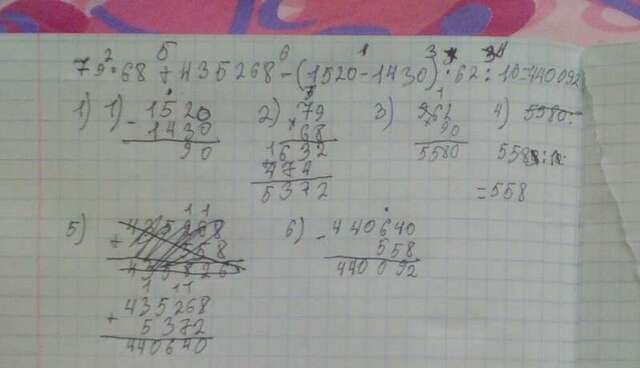 79·68+435268-(1520-1430)·62:10=440092
1) 1) 1520 2) 79 3) 62 4) 5580:
- 1430 × 68 90 558:10
90 1632 5580 =558
474
5372
5) 6) 440640
- 558
440092
435268
+ 5372
440640